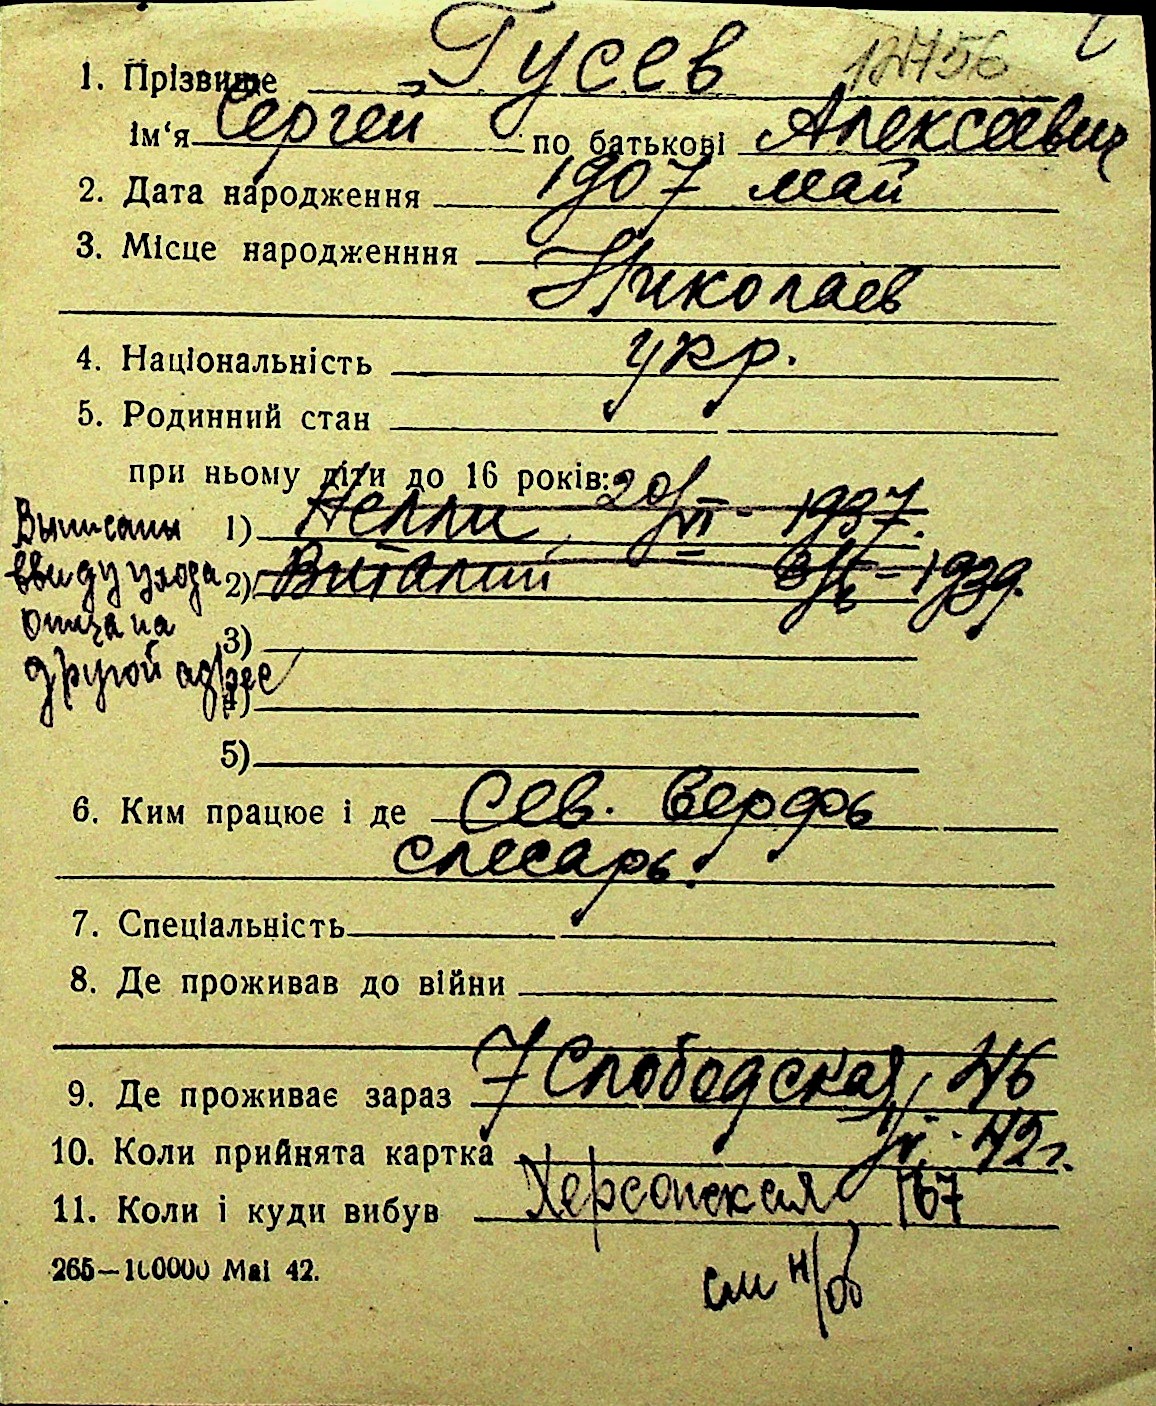 1. Прізвище Гусев 12756
ім'я Сергей по батькові Алексеевич
2. Дата народження 1907 май
3. Місце народженння
Николаев
4. Національність укр.
5. Родинний стан
при ньому діти до 16 років:
1) Нелли, 20/VI - 1937.
2) Виталий 3/6 - 1939.
Выписаны
ввиду ухода
отца на
другой адрес
3)
4)
5)
6. Ким працює і де Сев. верфь
слесарь.
7. Спеціальність
8. Де проживав до війни
9. Де проживає зараз 7 Слободская, 46
10. Коли прийнята картка 42 г.
11. Коли і куди вибув Херсонская 167
265—100000 Маі 42.
см н/об